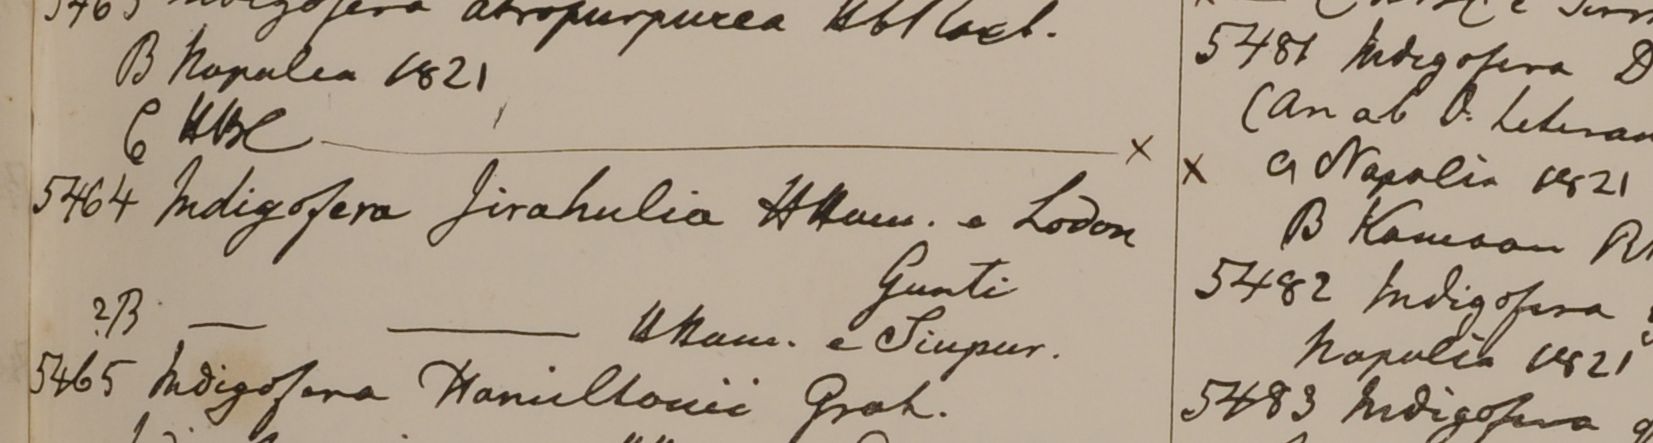 5463 Indigofera atropurpurea Hb Roxb.
B Napalia 1821
C HBC ———— ×
5464 Indigofera Jirahulia HHam. e Lodon
Gunti
?B — —— HHam. e Siupur.
5465 Indigofera Hamiltonii Grah.
5481 Indigofera D
(An ab I. heteran
× a Napalia 1821
B Kamaon R
5482 Indigofera
Napalia 1821
5483 Indigofera